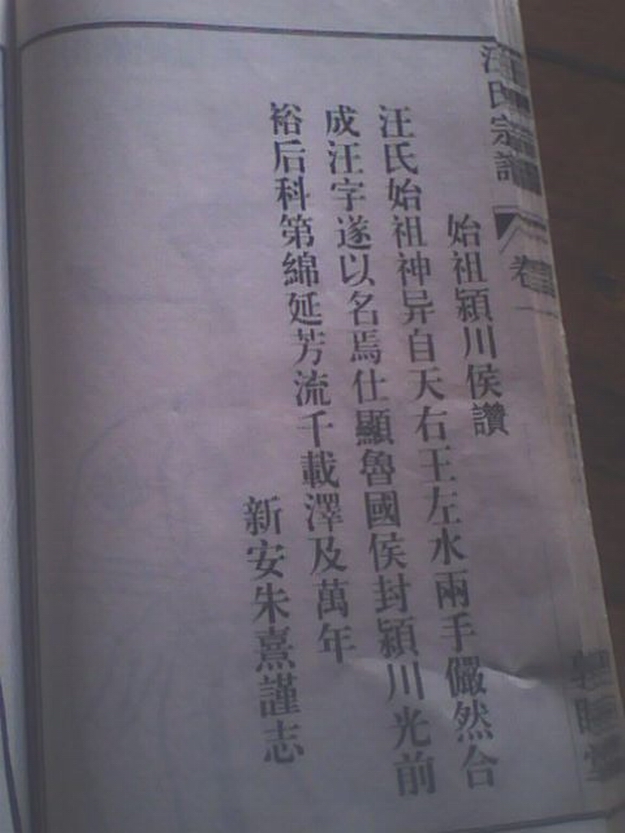 汪氏宗譜
卷
始祖潁川侯讚
汪氏始祖神异自天右王左水兩手儼然合
成汪字遂以名焉仕顯魯國侯封潁川光前
裕后科第綿延芳流千載澤及萬年
新安朱熹謹志